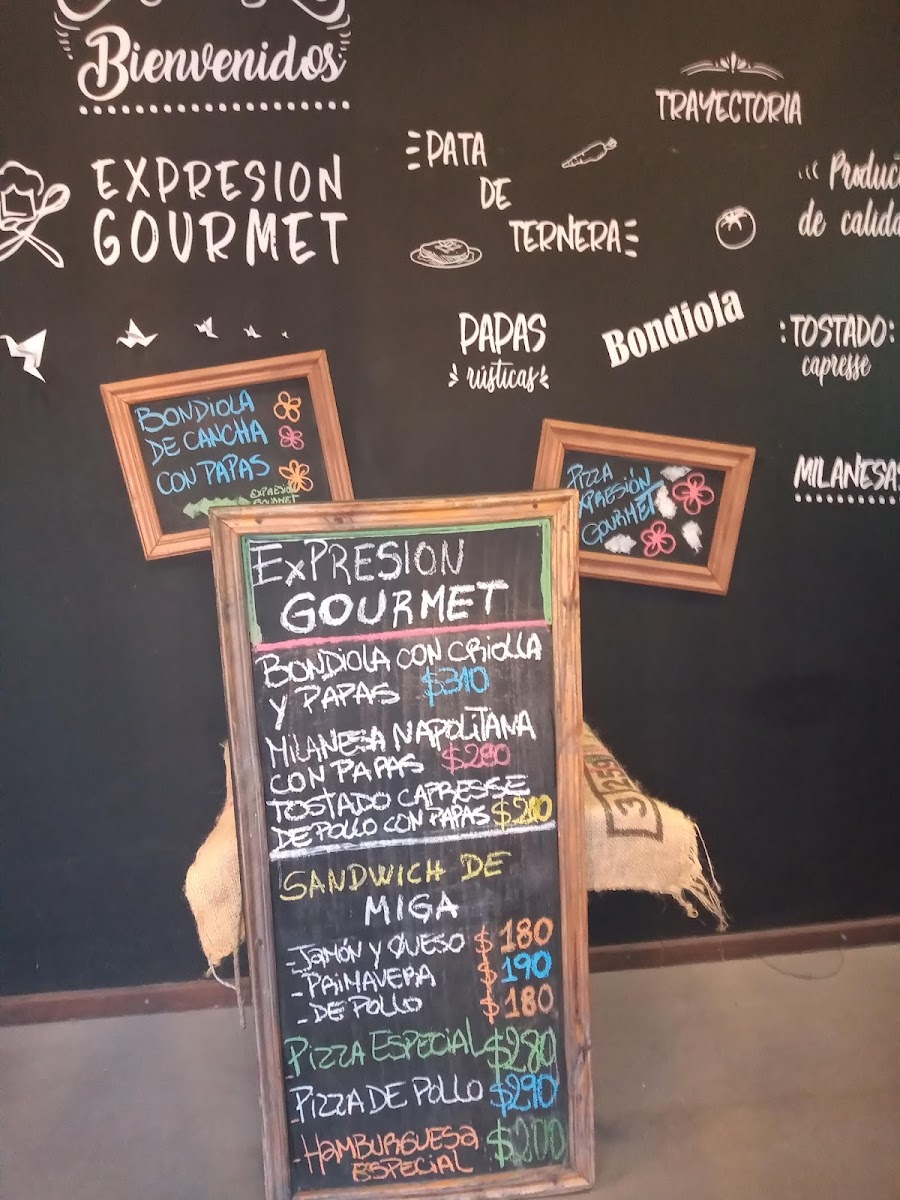 Bienvenidos
EXPRESION
GOURMET
PATA
DE
TERNERA
TRAYECTORIA
de
PAPAS
rústicas
Bondiola
TOSTADO
capresse
MILANESAS
BONDIOLA
DE CANCHA
CON PAPAS
EXPRESION
GOURMET
PIZZA
EXPRESIÓN
GOURMET
ExPRESION
GOURMET
BONDIOLA CON CRIOLLA
Y PAPAS $310
MILANESA NAPOLITANA
CON PAPAS $280
TOSTADO CAPRESSE
DE POLLO CON PAPAS
SANDWICH DE
MIGA
-JAMÓN Y QUESO $180
-PRIMAVERA $190
-DE POLLO $180
PIZZA ESPECIAL $280
PIZZA DE POLLO $290
HAMBURGUESA $200
ESPECIAL